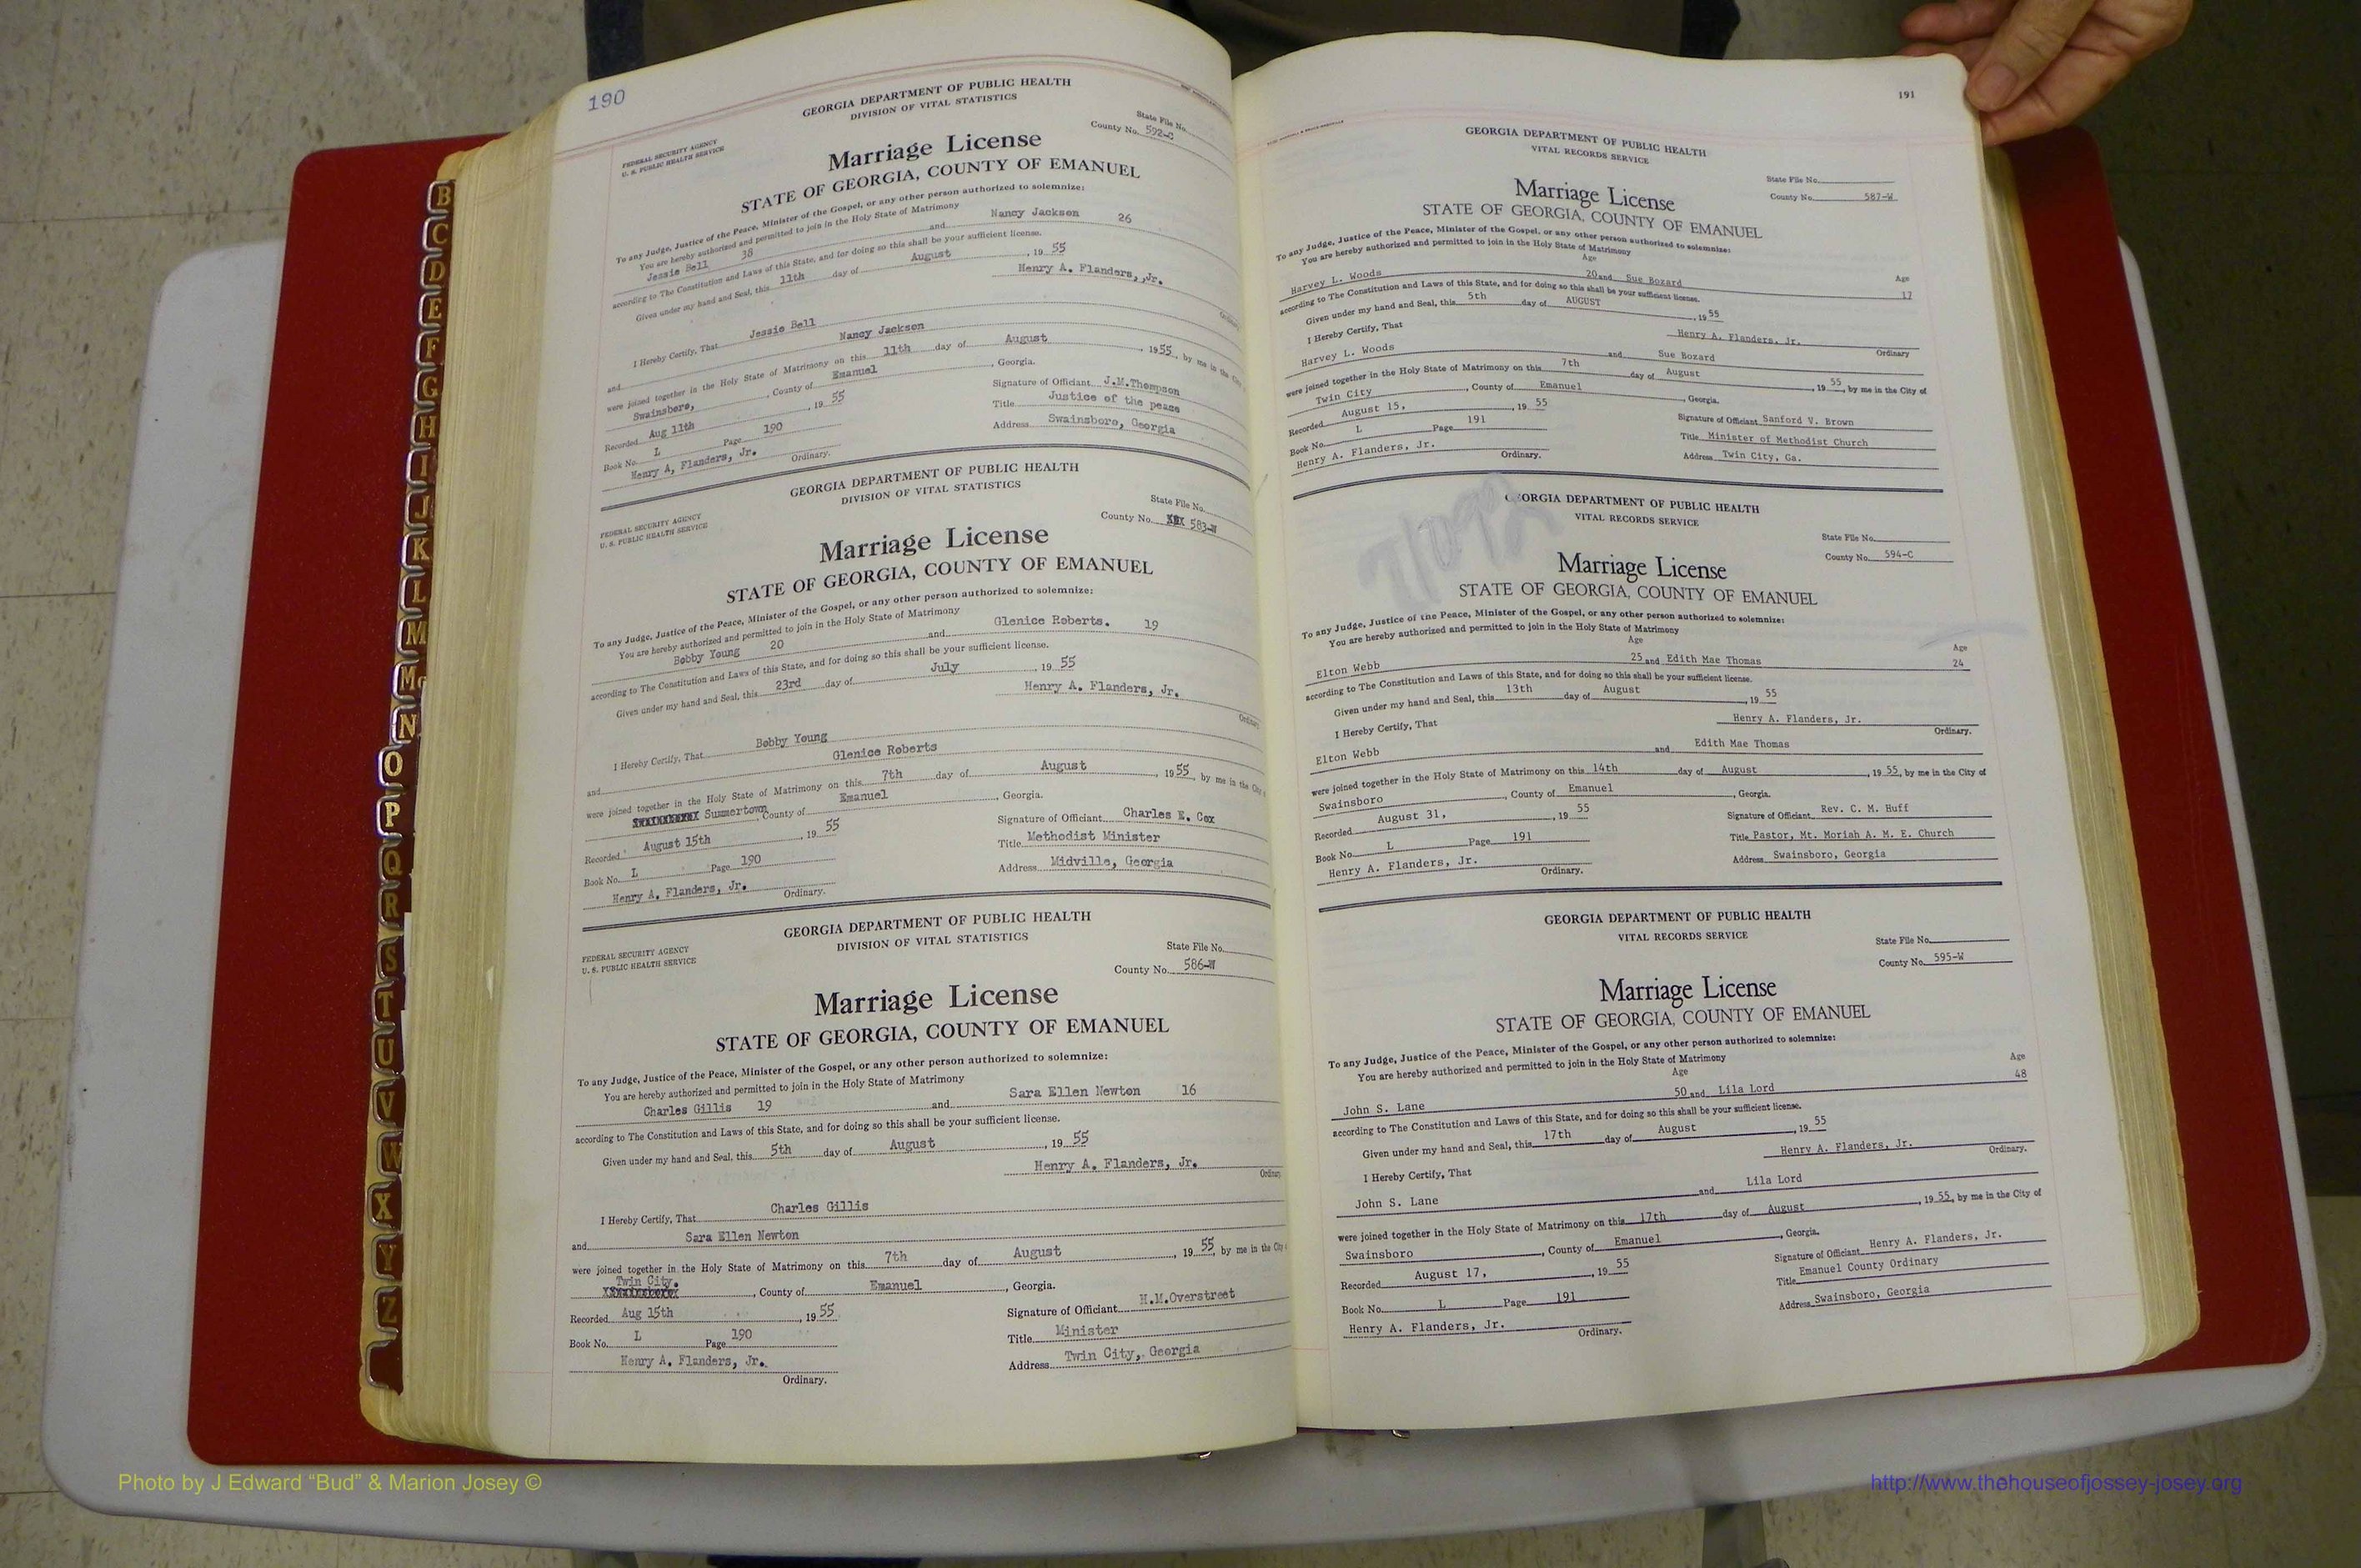 190
GEORGIA DEPARTMENT OF PUBLIC HEALTH
DIVISION OF VITAL STATISTICS
FEDERAL SECURITY AGENCY
U. S. PUBLIC HEALTH SERVICE
State File No.
County No. 592-C
Marriage License
STATE OF GEORGIA, COUNTY OF EMANUEL
To any Judge, Justice of the Peace, Minister of the Gospel, or any other person authorized to solemnize:
You are hereby authorized and permitted to join in the Holy State of Matrimony
Jessie Bell 38 and Nancy Jackson 26
according to The Constitution and Laws of this State, and for doing so this shall be your sufficient license.
Given under my hand and Seal, this 11th day of August, 1955
Henry A. Flanders, Jr.
Ordinary
I Hereby Certify, That Jessie Bell
and Nancy Jackson
were joined together in the Holy State of Matrimony on this 11th day of August, 1955, by me in the City
Swainsboro, County of Emanuel, Georgia.
Recorded Aug 11th, 1955
Signature of Officiant J.M.Thompson
Book No. L Page 190
Title Justice of the peace
Henry A, Flanders, Jr. Ordinary.
Address Swainsboro, Georgia
GEORGIA DEPARTMENT OF PUBLIC HEALTH
DIVISION OF VITAL STATISTICS
FEDERAL SECURITY AGENCY
U. S. PUBLIC HEALTH SERVICE
State File No.
County No. 583-W
Marriage License
STATE OF GEORGIA, COUNTY OF EMANUEL
To any Judge, Justice of the Peace, Minister of the Gospel, or any other person authorized to solemnize:
You are hereby authorized and permitted to join in the Holy State of Matrimony
Bobby Young 20 and Glenice Roberts. 19
according to The Constitution and Laws of this State, and for doing so this shall be your sufficient license.
Given under my hand and Seal, this 23rd day of July, 1955
Henry A. Flanders, Jr.
Ordinary
I Hereby Certify, That Bobby Young
and Glenice Roberts
were joined together in the Holy State of Matrimony on this 7th day of August, 1955, by me in the City
Summertown, County of Emanuel, Georgia.
Recorded August 15th, 1955
Signature of Officiant Charles E. Cox
Book No. L Page 190
Title Methodist Minister
Henry A. Flanders, Jr. Ordinary.
Address Midville, Georgia
GEORGIA DEPARTMENT OF PUBLIC HEALTH
DIVISION OF VITAL STATISTICS
FEDERAL SECURITY AGENCY
U. S. PUBLIC HEALTH SERVICE
State File No.
County No. 586-W
Marriage License
STATE OF GEORGIA, COUNTY OF EMANUEL
To any Judge, Justice of the Peace, Minister of the Gospel, or any other person authorized to solemnize:
You are hereby authorized and permitted to join in the Holy State of Matrimony
Charles Gillis 19 and Sara Ellen Newton 16
according to The Constitution and Laws of this State, and for doing so this shall be your sufficient license.
Given under my hand and Seal, this 5th day of August, 1955
Henry A. Flanders, Jr.
Ordinary
I Hereby Certify, That Charles Gillis
and Sara Ellen Newton
were joined together in the Holy State of Matrimony on this 7th day of August, 1955, by me in the City
Twin City. County of Emanuel, Georgia.
Recorded Aug 15th, 1955
Signature of Officiant H.M.Overstreet
Book No. L Page 190
Title Minister
Henry A. Flanders, Jr.
Ordinary.
Address Twin City, Georgia
191
GEORGIA DEPARTMENT OF PUBLIC HEALTH
VITAL RECORDS SERVICE
State File No.
County No. 587-W
Marriage License
STATE OF GEORGIA, COUNTY OF EMANUEL
To any Judge, Justice of the Peace, Minister of the Gospel, or any other person authorized to solemnize:
You are hereby authorized and permitted to join in the Holy State of Matrimony
Age Age
Harvey L. Woods 20 and Sue Bozard 17
according to The Constitution and Laws of this State, and for doing so this shall be your sufficient license.
Given under my hand and Seal, this 5th day of AUGUST, 1955
Henry A. Flanders, Jr.
Ordinary
I Hereby Certify, That
Harvey L. Woods and Sue Bozard
were joined together in the Holy State of Matrimony on this 7th day of August, 1955, by me in the City of
Twin City, County of Emanuel, Georgia.
Recorded August 15, 1955
Signature of Officiant Sanford V. Brown
Book No. L Page 191
Title Minister of Methodist Church
Henry A. Flanders, Jr. Ordinary.
Address Twin City, Ga.
GEORGIA DEPARTMENT OF PUBLIC HEALTH
VITAL RECORDS SERVICE
State File No.
County No. 594-C
Marriage License
STATE OF GEORGIA, COUNTY OF EMANUEL
To any Judge, Justice of the Peace, Minister of the Gospel, or any other person authorized to solemnize:
You are hereby authorized and permitted to join in the Holy State of Matrimony
Age Age
Elton Webb 25 and Edith Mae Thomas 24
according to The Constitution and Laws of this State, and for doing so this shall be your sufficient license.
Given under my hand and Seal, this 13th day of August, 1955
Henry A. Flanders, Jr.
Ordinary.
I Hereby Certify, That
Elton Webb and Edith Mae Thomas
were joined together in the Holy State of Matrimony on this 14th day of August, 1955, by me in the City of
Swainsboro, County of Emanuel, Georgia.
Recorded August 31, 1955
Signature of Officiant Rev. C. M. Huff
Book No. L Page 191
Title Pastor, Mt. Moriah A. M. E. Church
Henry A. Flanders, Jr. Ordinary.
Address Swainsboro, Georgia
GEORGIA DEPARTMENT OF PUBLIC HEALTH
VITAL RECORDS SERVICE
State File No.
County No. 595-W
Marriage License
STATE OF GEORGIA, COUNTY OF EMANUEL
To any Judge, Justice of the Peace, Minister of the Gospel, or any other person authorized to solemnize:
You are hereby authorized and permitted to join in the Holy State of Matrimony
Age Age
John S. Lane 50 and Lila Lord 48
according to The Constitution and Laws of this State, and for doing so this shall be your sufficient license.
Given under my hand and Seal, this 17th day of August, 1955
Henry A. Flanders, Jr.
Ordinary.
I Hereby Certify, That
John S. Lane and Lila Lord
were joined together in the Holy State of Matrimony on this 17th day of August, 1955, by me in the City of
Swainsboro, County of Emanuel, Georgia.
Recorded August 17, 1955
Signature of Officiant Henry A. Flanders, Jr.
Title Emanuel County Ordinary
Book No. L Page 191
Address Swainsboro, Georgia
Henry A. Flanders, Jr.
Ordinary.
B
C
D
E
F
G
H
I
J
K
L
M
Mc
N
O
P
Q
R
S
T
U
V
W
X
Y
Z
Photo by J Edward “Bud” & Marion Josey ©
http://www.thehouseofjossey-josey.org